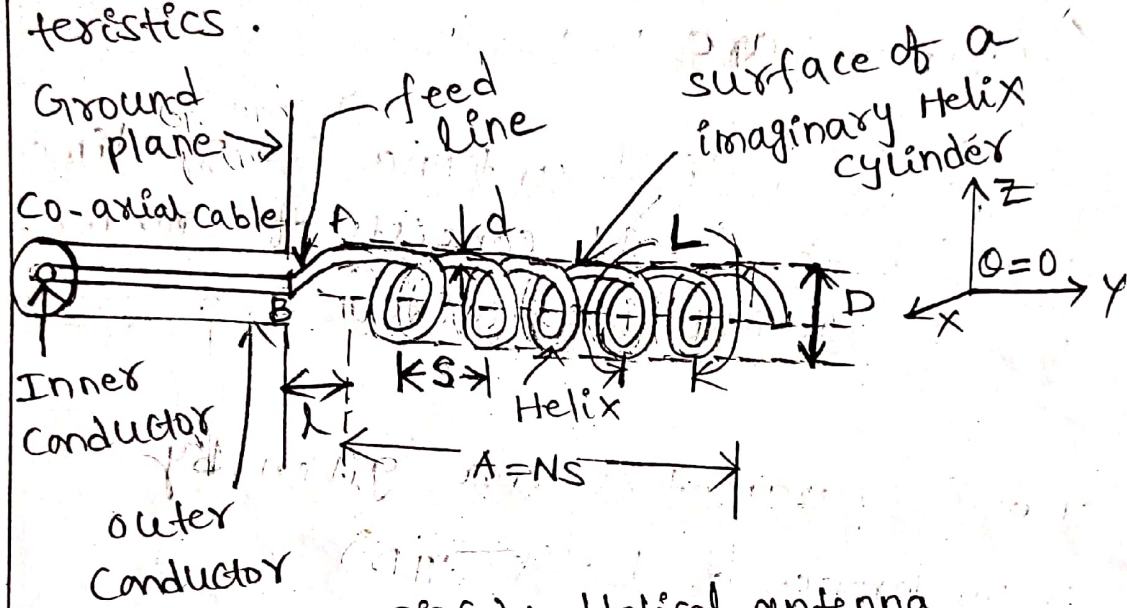 teristics.
Ground
plane
feed
line
surface of a
imaginary Helix
cylinder
Co-axial cable
A
d
L
Z
θ=0
Y
X
D
B
S
Helix
l
Inner
Conductor
A=NS
outer
Conductor
Helical antenna